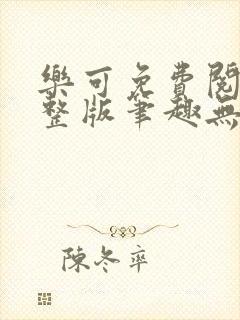 樂可免費閱
整版筆趣無
陳冬卒